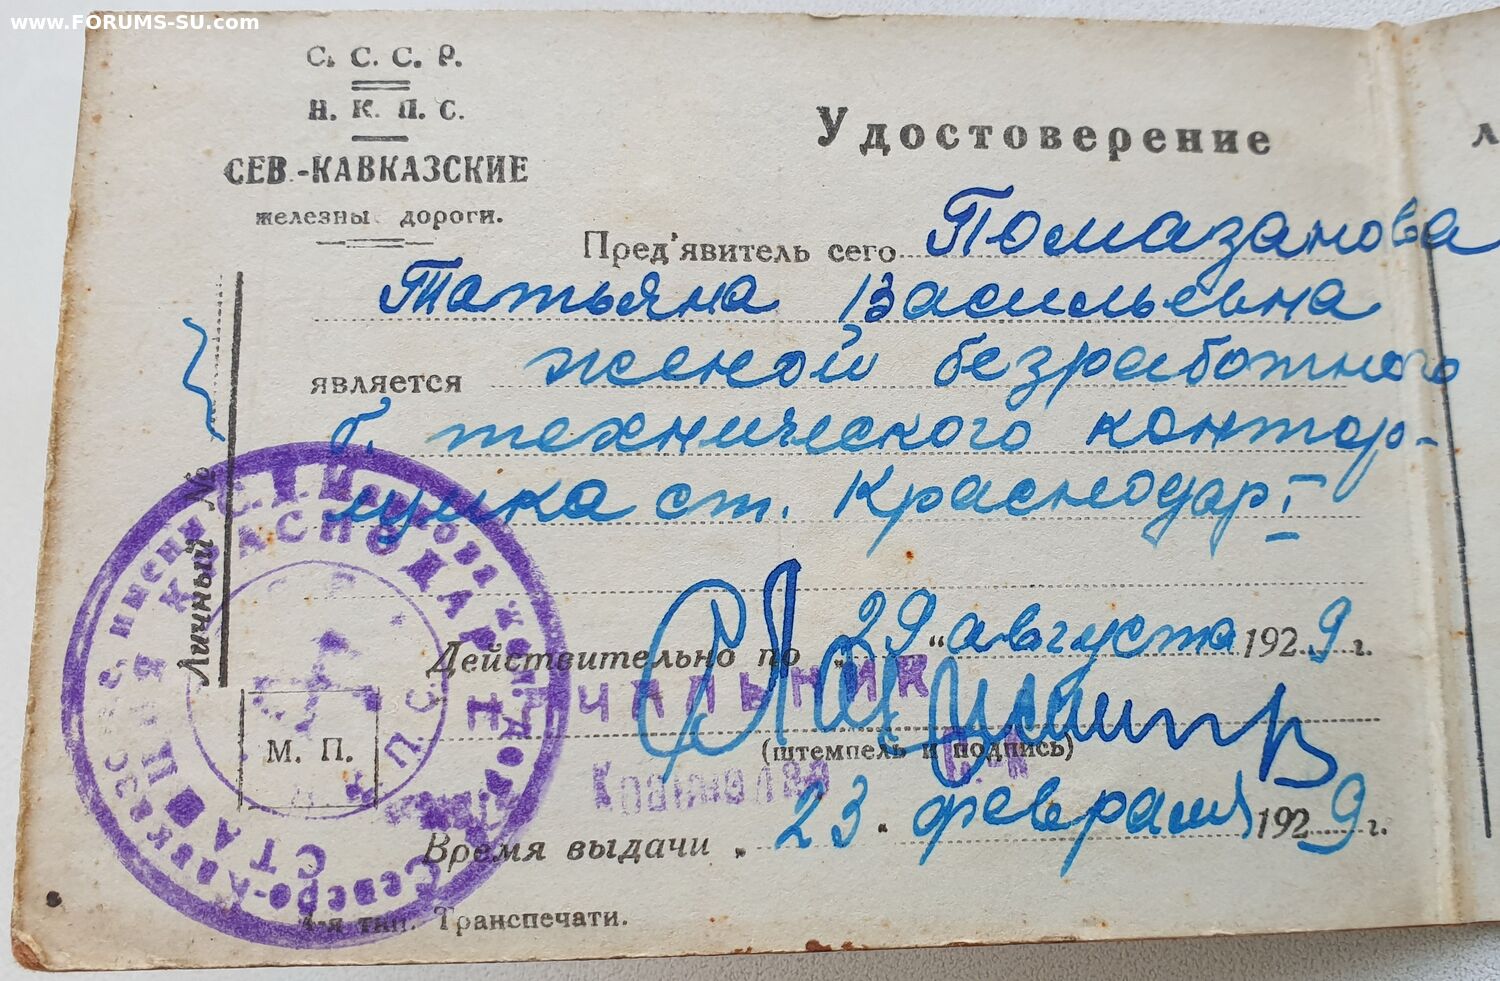 www.FORUMS-SU.com
С. С. С. Р.
Н. К. П. С.
СЕВ.-КАВКАЗСКИЕ
железны дороги.
Удостоверение
л
Пред'явитель сего Помазанова
Татьяна Васильевна
является женой безработного
б. технического контор-
щика ст. Краснодар I
Личный №
Действительно по „29 “ августа 1929 г.
НАЧАЛЬНИК
(штемпель и подпись)
М. П.
Время выдачи „23 “ февраля 1929 г.
4-я тип. Транспечати.
Северо-Кавказс имени железн дор
СТАНЦИЯ КРАСНОДАР I
Н.К.П.С.